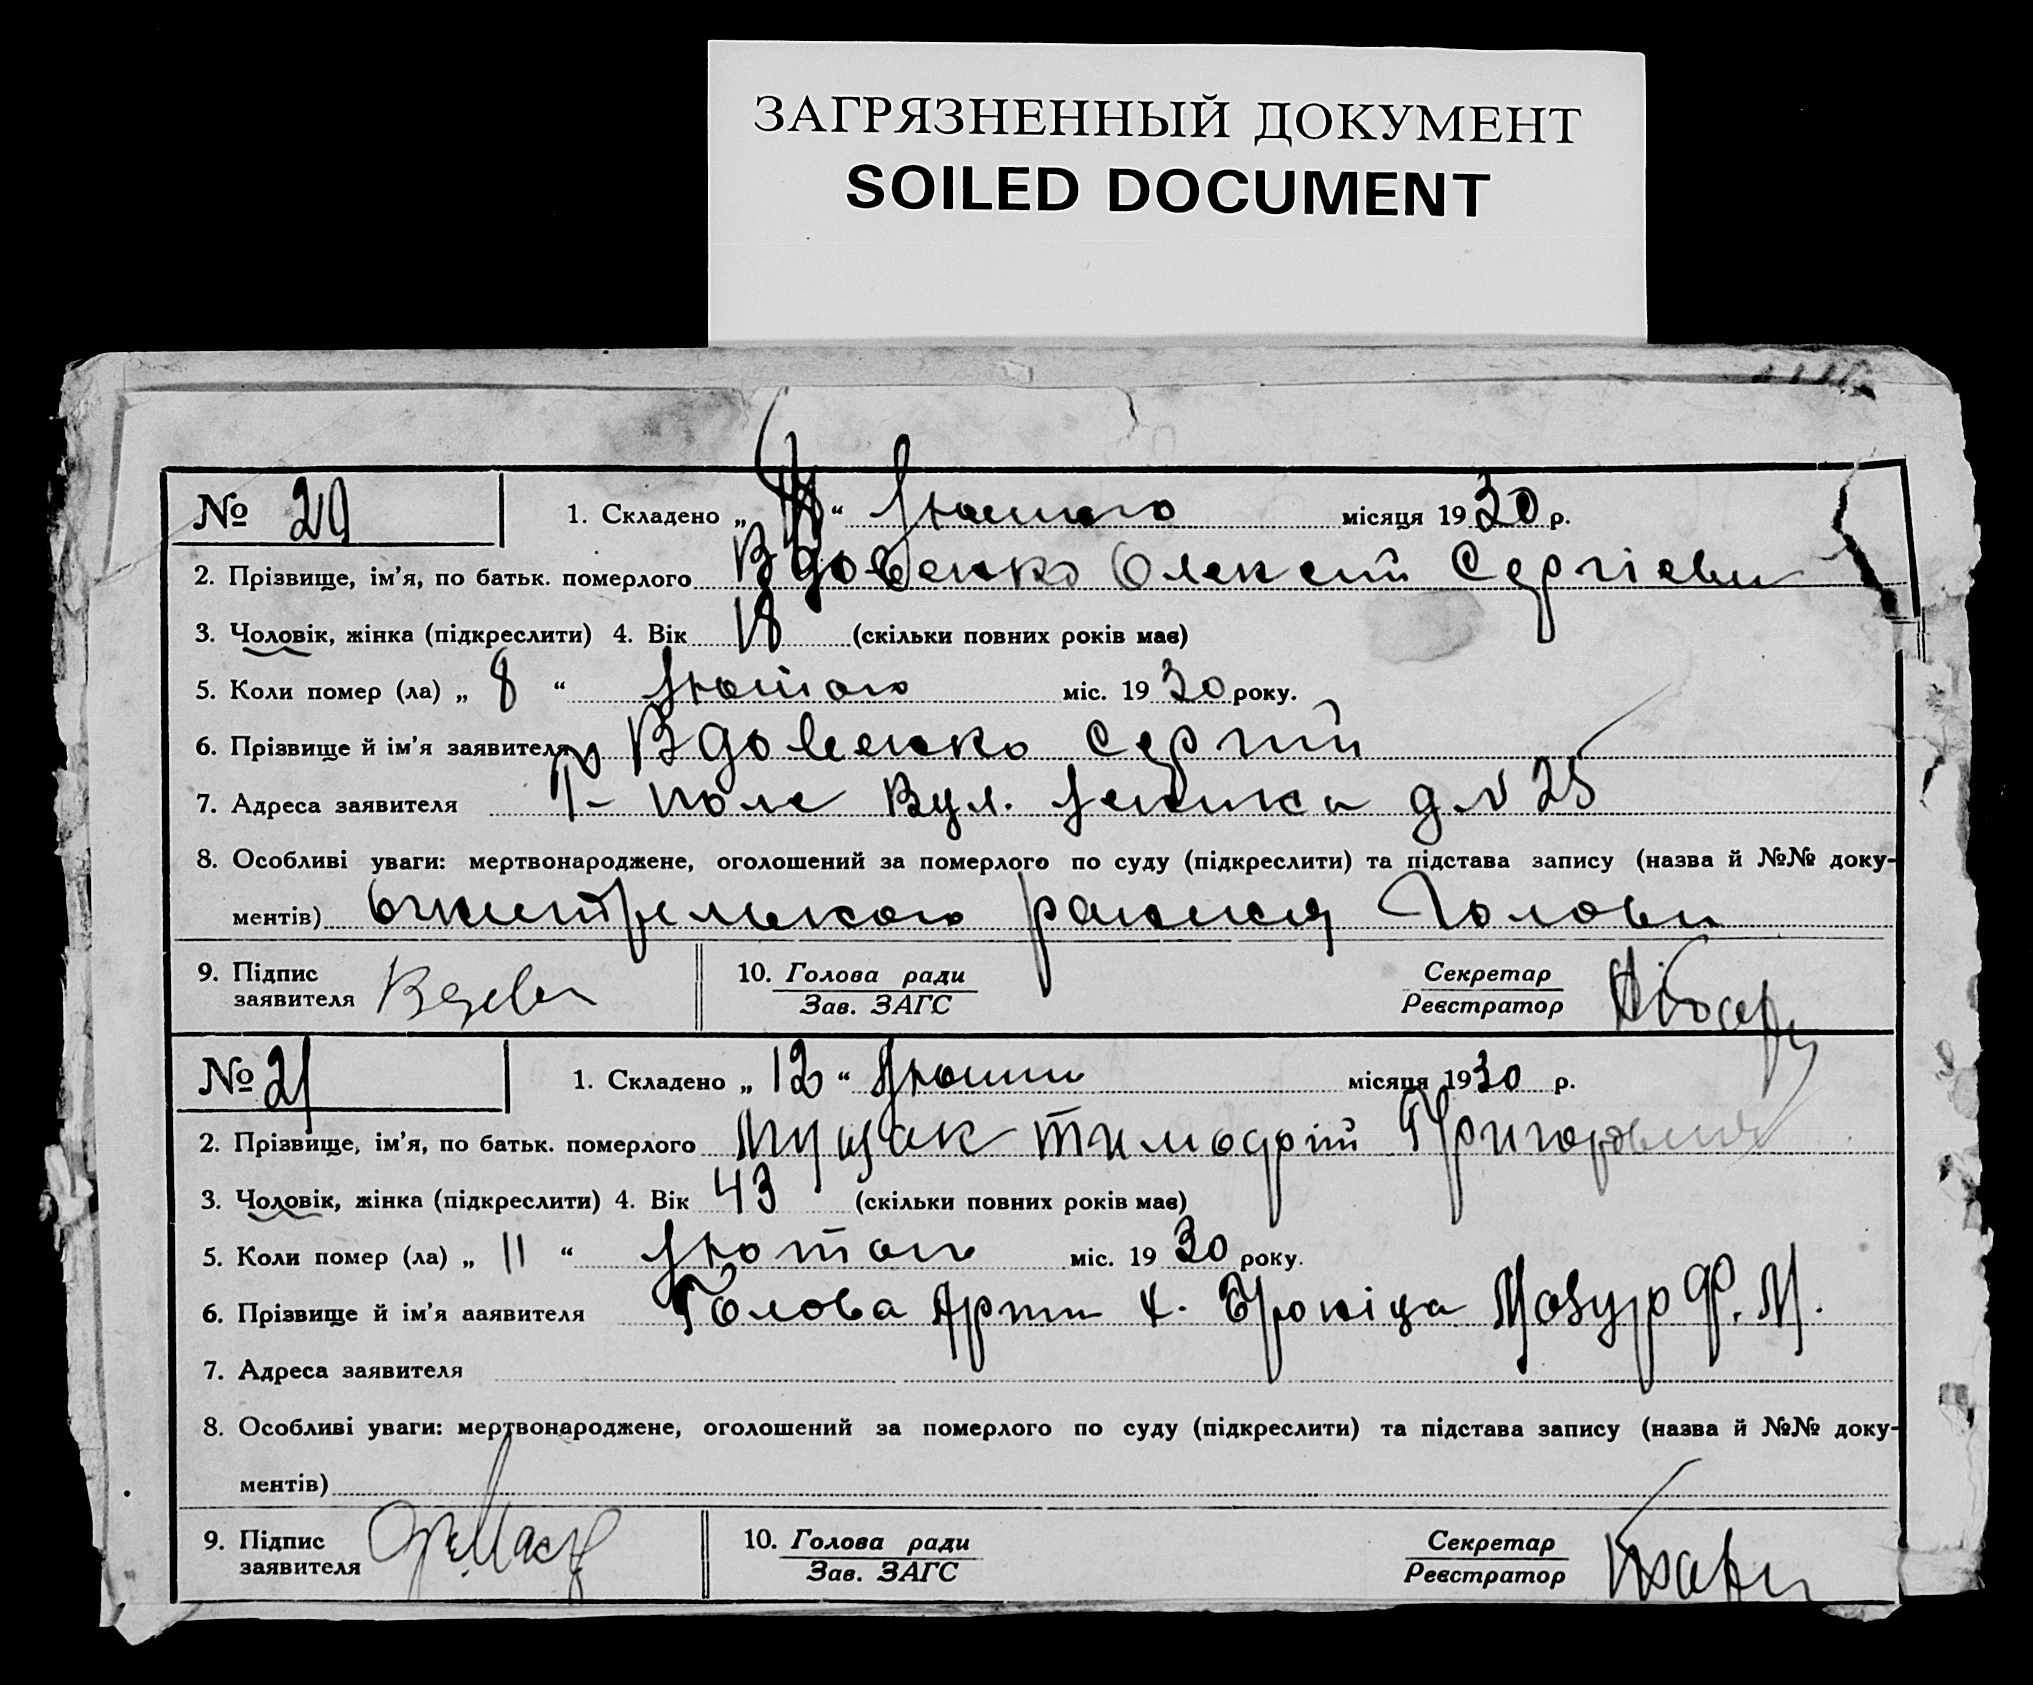 ЗАГРЯЗНЕННЫЙ ДОКУМЕНТ
SOILED DOCUMENT
№ 20 1. Складено „ “ Лютого місяця 1930 р.
2. Прізвище, ім'я, по батьк. померлого Вдовенко Олексій Сергієви
3. Чоловік, жінка (підкреслити) 4. Вік 18 (скільки повних років має)
5. Коли помер (ла) „ 8 “ Лютого міс. 1930 року.
6. Прізвище й ім'я заявителя Вдовенко Сергій
7. Адреса заявителя Г- поле Вул. д. № 25
8. Особливі уваги: мертвонароджене, оголошений за померлого по суду (підкреслити) та підстава запису (назва й №№ доку-
ментів) Голови
9. Підпис заявителя 10. Голова ради Зав. ЗАГС Секретар Реєстратор
№ 21 1. Складено „ 12 “ Лютий місяця 1930 р.
2. Прізвище, ім'я, по батьк. померлого Тимофій Григорович
3. Чоловік, жінка (підкреслити) 4. Вік 43 (скільки повних років має)
5. Коли помер (ла) „ 11 “ Лютого міс. 1930 року.
6. Прізвище й ім'я заявителя Голова Арт. Мазур Ф. М.
7. Адреса заявителя
8. Особливі уваги: мертвонароджене, оголошений за померлого по суду (підкреслити) та підстава запису (назва й №№ доку-
ментів)
9. Підпис заявителя 10. Голова ради Зав. ЗАГС Секретар Реєстратор